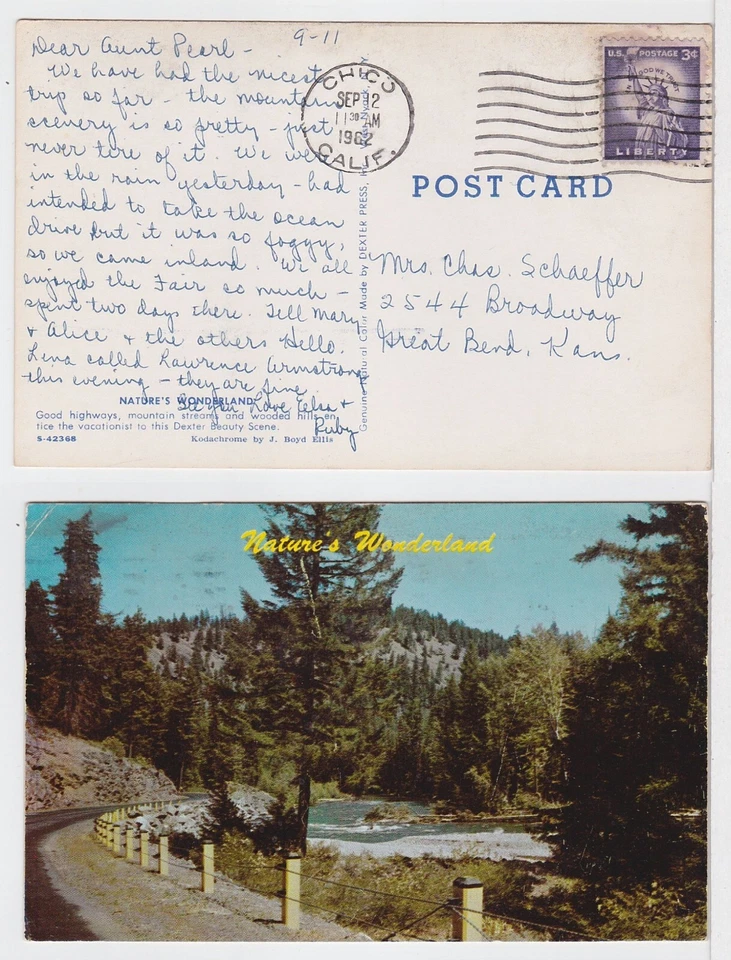 9-11
Dear Aunt Pearl -
We have had the nicest
trip so far - the mountain
scenery is so pretty - just
never tire of it. We were
in the rain yesterday - had
intended to take the ocean
drive but it was so foggy,
so we came inland. We all
enjoyed the Fair so much -
spent two days there. Tell Mary
& Alice & the others Hello.
Lena called Lawrence Armstrong
this evening - they are fine.
See you, Love Elsa &
Ruby
NATURE'S WONDERLAND
Good highways, mountain streams and wooded hills en-
tice the vacationist to this Dexter Beauty Scene.
S-42368
Kodachrome by J. Boyd Ellis
Genuine Natural Color Made by DEXTER PRESS,
CHICO
SEP 12
11 30 AM
1962
CALIF.
U.S. POSTAGE 3¢
IN GOD WE TRUST
LIBERTY
POST CARD
Mrs. Chas. Schaeffer
2544 Broadway
Great Bend, Kans.
Nature's Wonderland